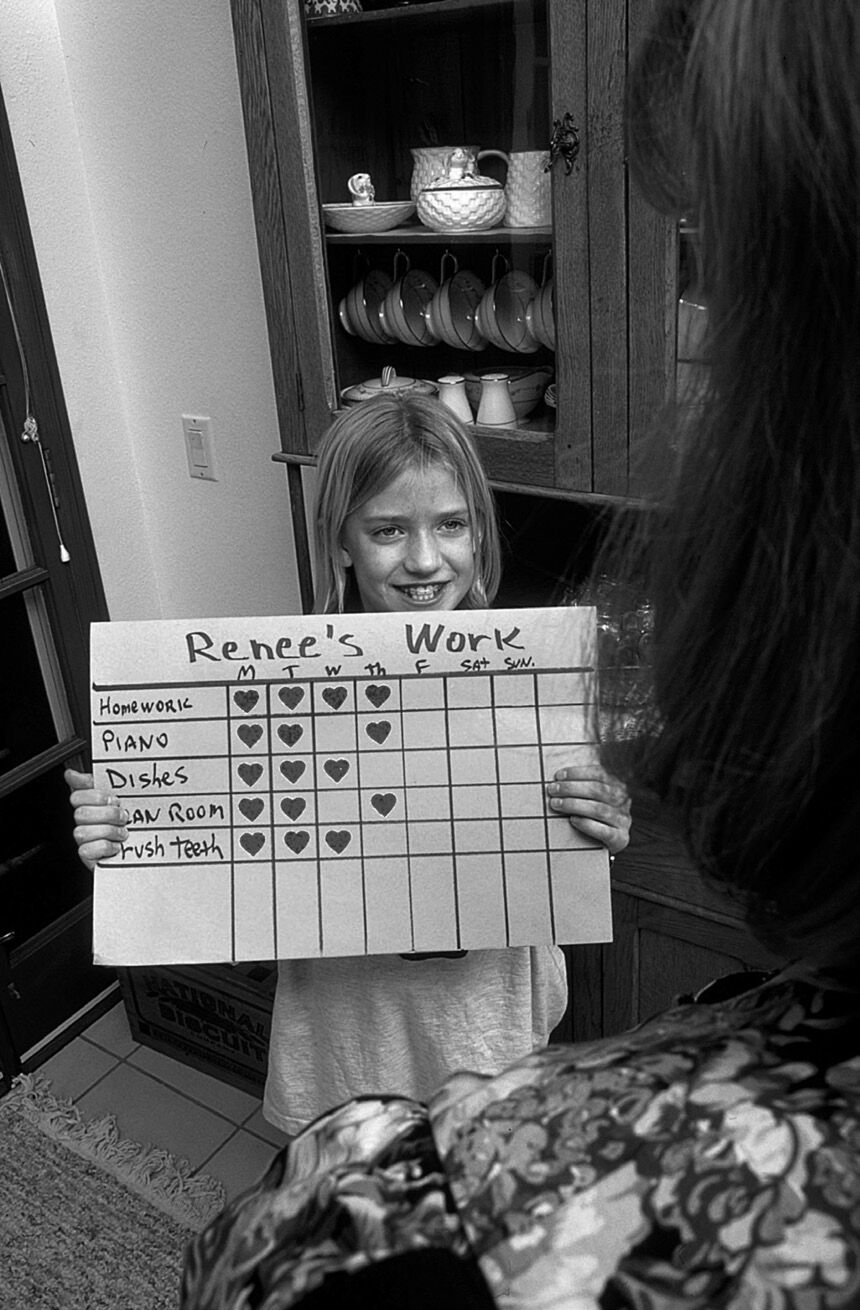 Renee's Work
M T W Th F SAT SUN.
HOMEWORK
PIANO
DISHES
EAN ROOM
rush teeth
NATIONAL
BISCUIT